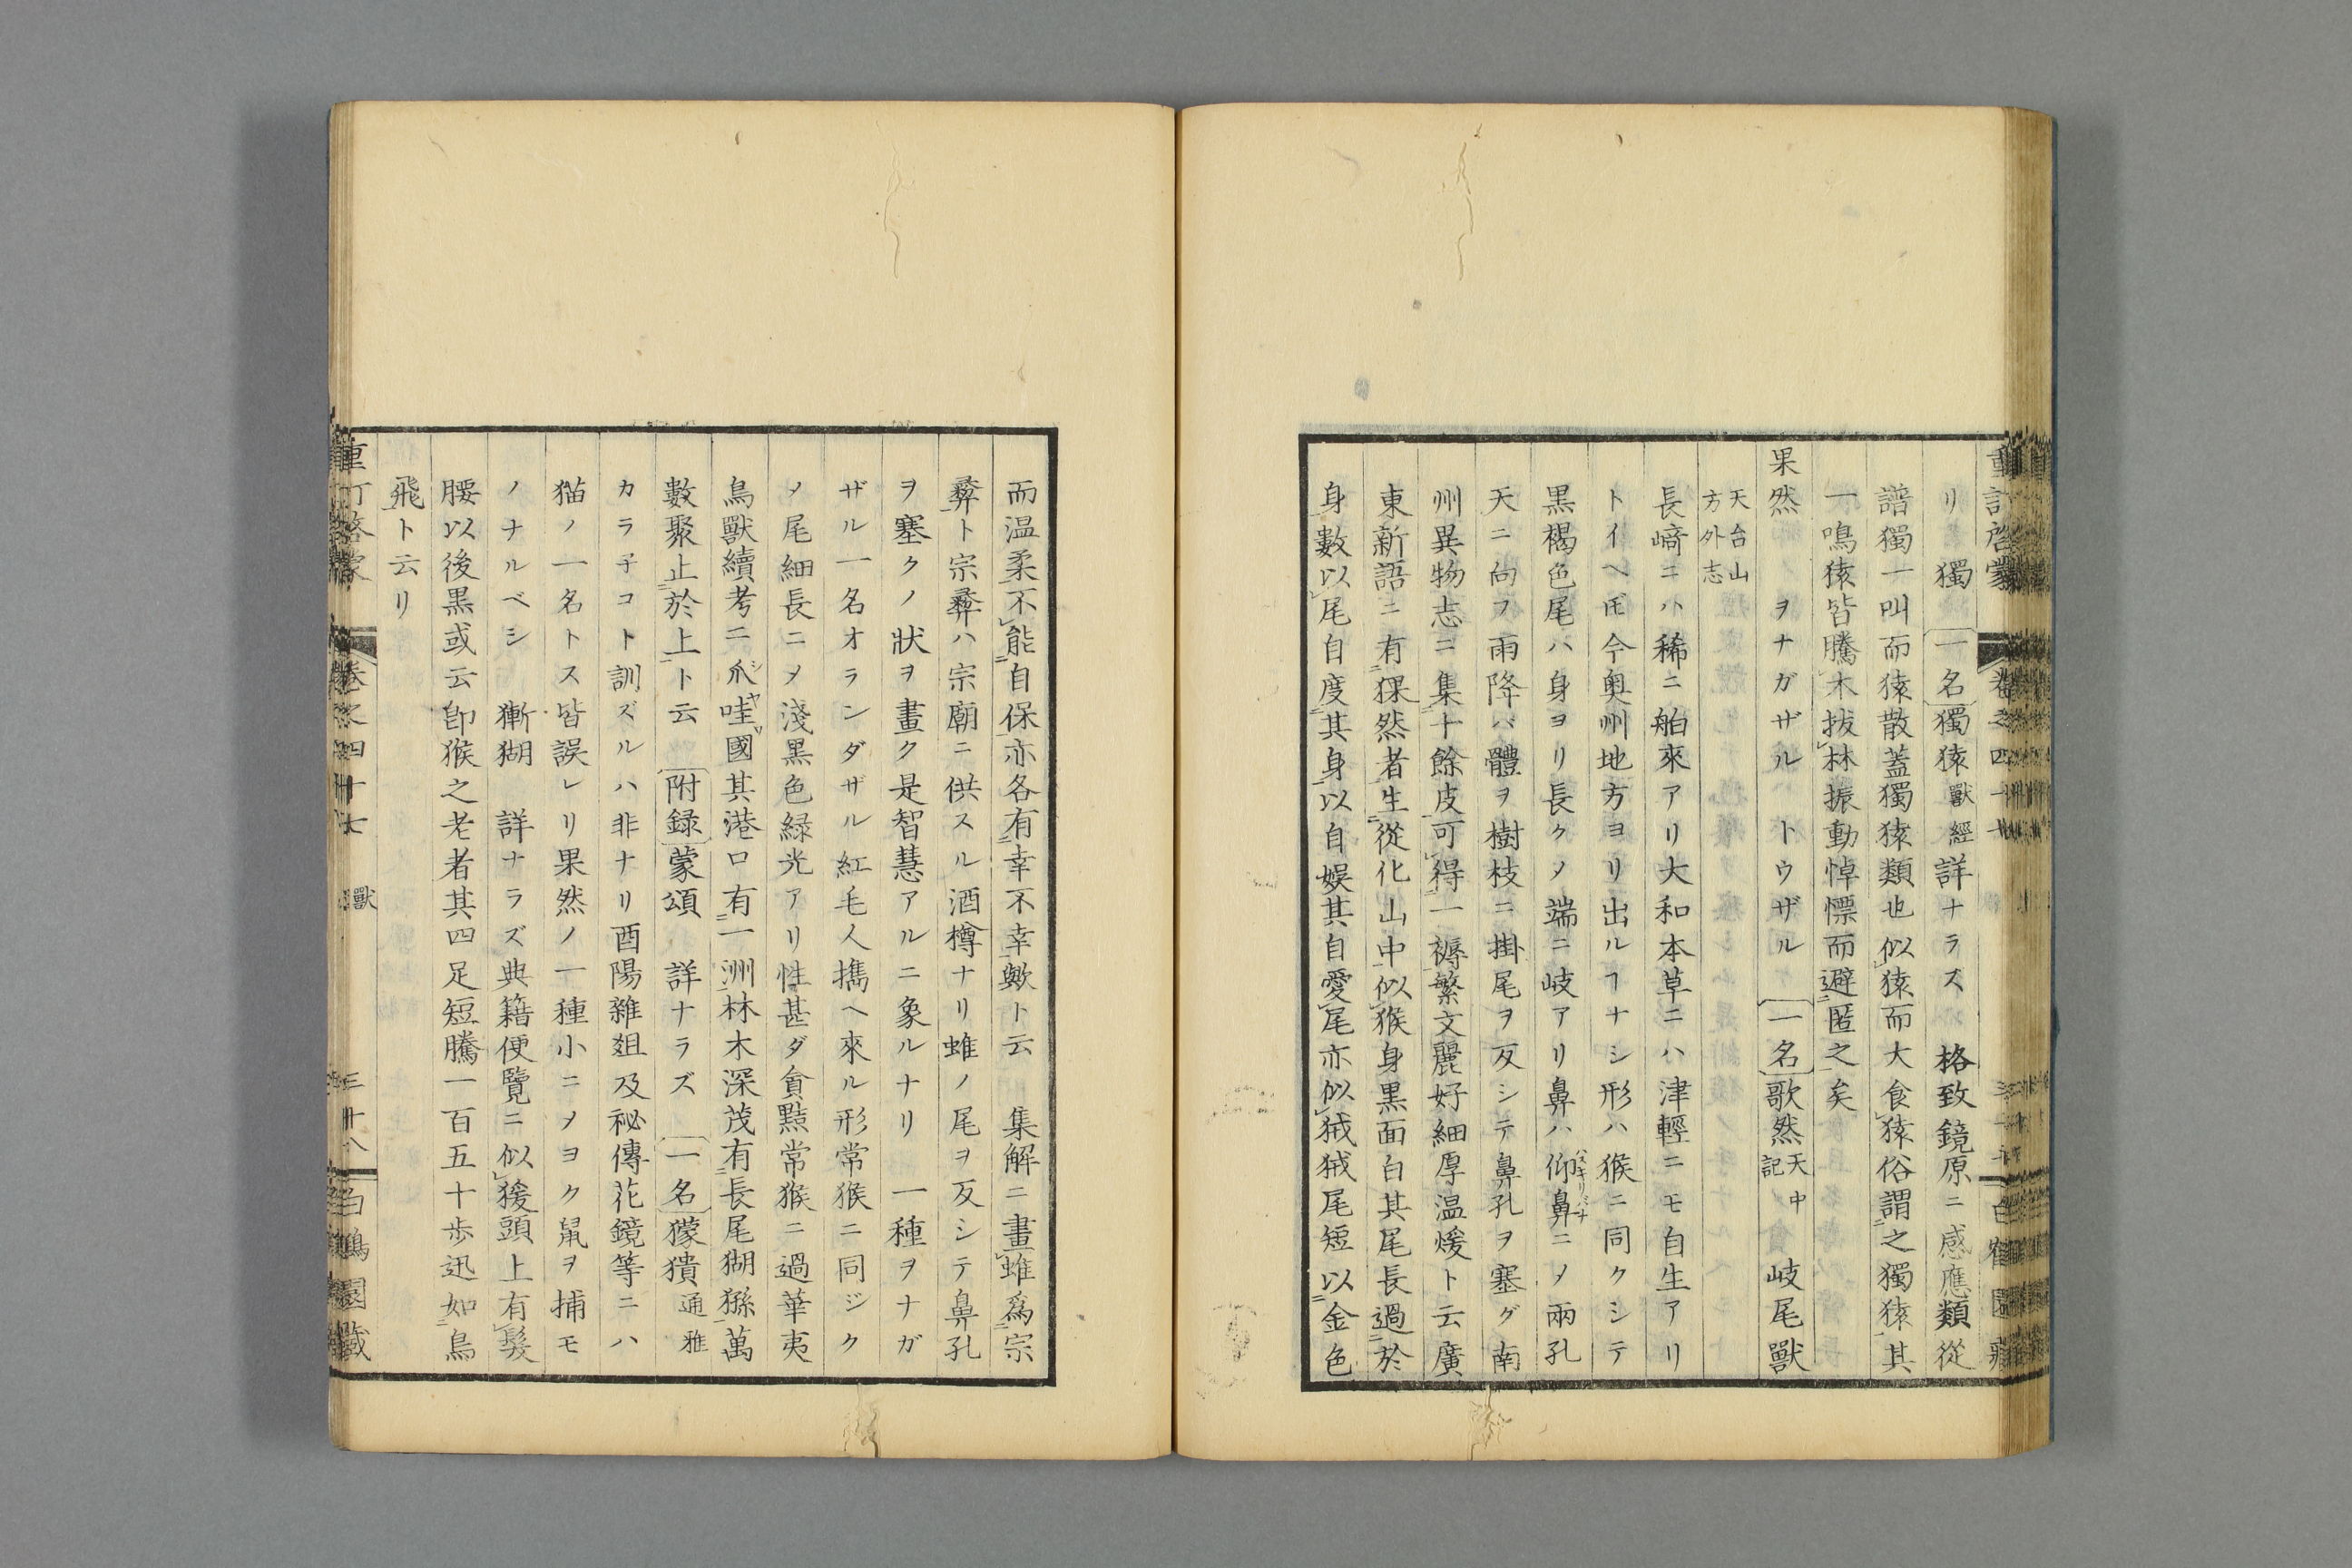 重訂啓蒙 卷之四十七 白鶴園藏
リ 獨 一名獨猿獸經詳ナラズ 格致鏡原ニ感應類從
譜獨一叫而猿散蓋獨猿類也似猿而大食猿俗謂之獨猿其
一鳴猿皆騰木拔林振動悼慄而避匿之矣
果然 ヲナガザル トウザル 一名歌然天中記 岐尾獸
天台山方外志
長﨑ニハ稀ニ舶來アリ大和本草ニハ津輕ニモ自生アリ
トイヘ𪜈今奥州地方ヨリ出ルヿナシ形ハ猴ニ同クシテ
黒褐色尾ハ身ヨリ長クノ端ニ岐アリ鼻ハ仰鼻ニノ兩孔
天ニ向フ雨降バ體ヲ樹枝ニ掛尾ヲ反シテ鼻孔ヲ塞グ南
州異物志ニ集十餘皮可得一褥繁文麗好細厚温煖ト云廣
東新語ニ有猓然者生從化山中似猴身黒面白其尾長過於
身數以尾自度其身以自娯其自愛尾亦似狨狨尾短以金色
而温柔不能自保亦各有幸不幸歟ト云 集解ニ畫蜼爲宗
彜ト宗彜ハ宗廟ニ供スル酒樽ナリ蜼ノ尾ヲ反シテ鼻孔
ヲ塞クノ狀ヲ畫ク是智慧アルニ象ルナリ 一種ヲナガ
ザル一名オランダザル紅毛人携ヘ來ル形常猴ニ同ジク
ノ尾細長ニノ淺黒色緑光アリ性甚ダ貪黠常猴ニ過華夷
鳥獸續考ニ爪哇國其港口有一洲林木深茂有長尾猢猻萬
數聚止於上ト云 附録蒙頌 詳ナラズ 一名獴㹟通雅
カラ子コト訓ズルハ非ナリ酉陽雜俎及祕傳花鏡等ニハ
猫ノ一名トス皆誤レリ果然ノ一種小ニノヨク鼠ヲ捕モ
ノナルベシ 獑猢 詳ナラズ典籍便覽ニ似猨頭上有髮
腰以後黒或云卽猴之老者其四足短騰一百五十歩迅如鳥
飛ト云リ
卷之四十七 獸 三十八 白鶴園藏